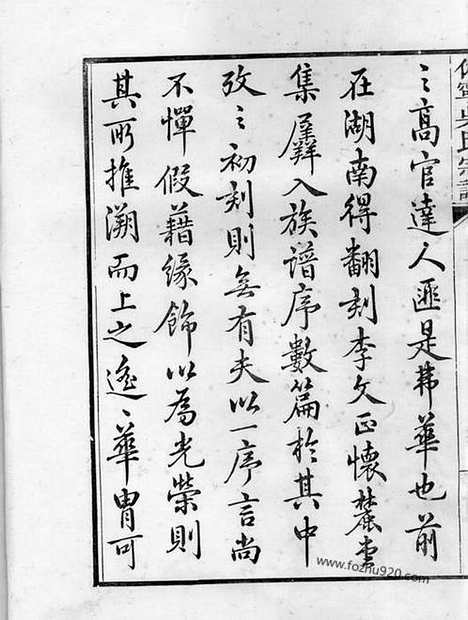 之高官達人匪是弗華也前
在湖南得翻刻李文正懷麓堂
集羼入族譜序數篇於其中
攷之初刻則無有夫以一序言尚
不憚假藉緣飾以為光榮則
其所推溯而上之遙遙華胄可
吳氏宗譜
www.fozhu920.com